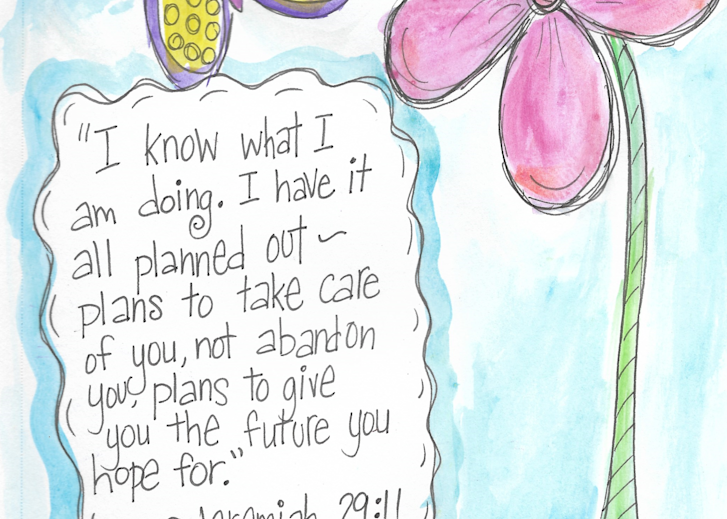 "I know what I
am doing. I have it
all planned out ~
plans to take care
of you, not abandon
you, plans to give
you the future you
hope for."
~ Jeremiah 29:11